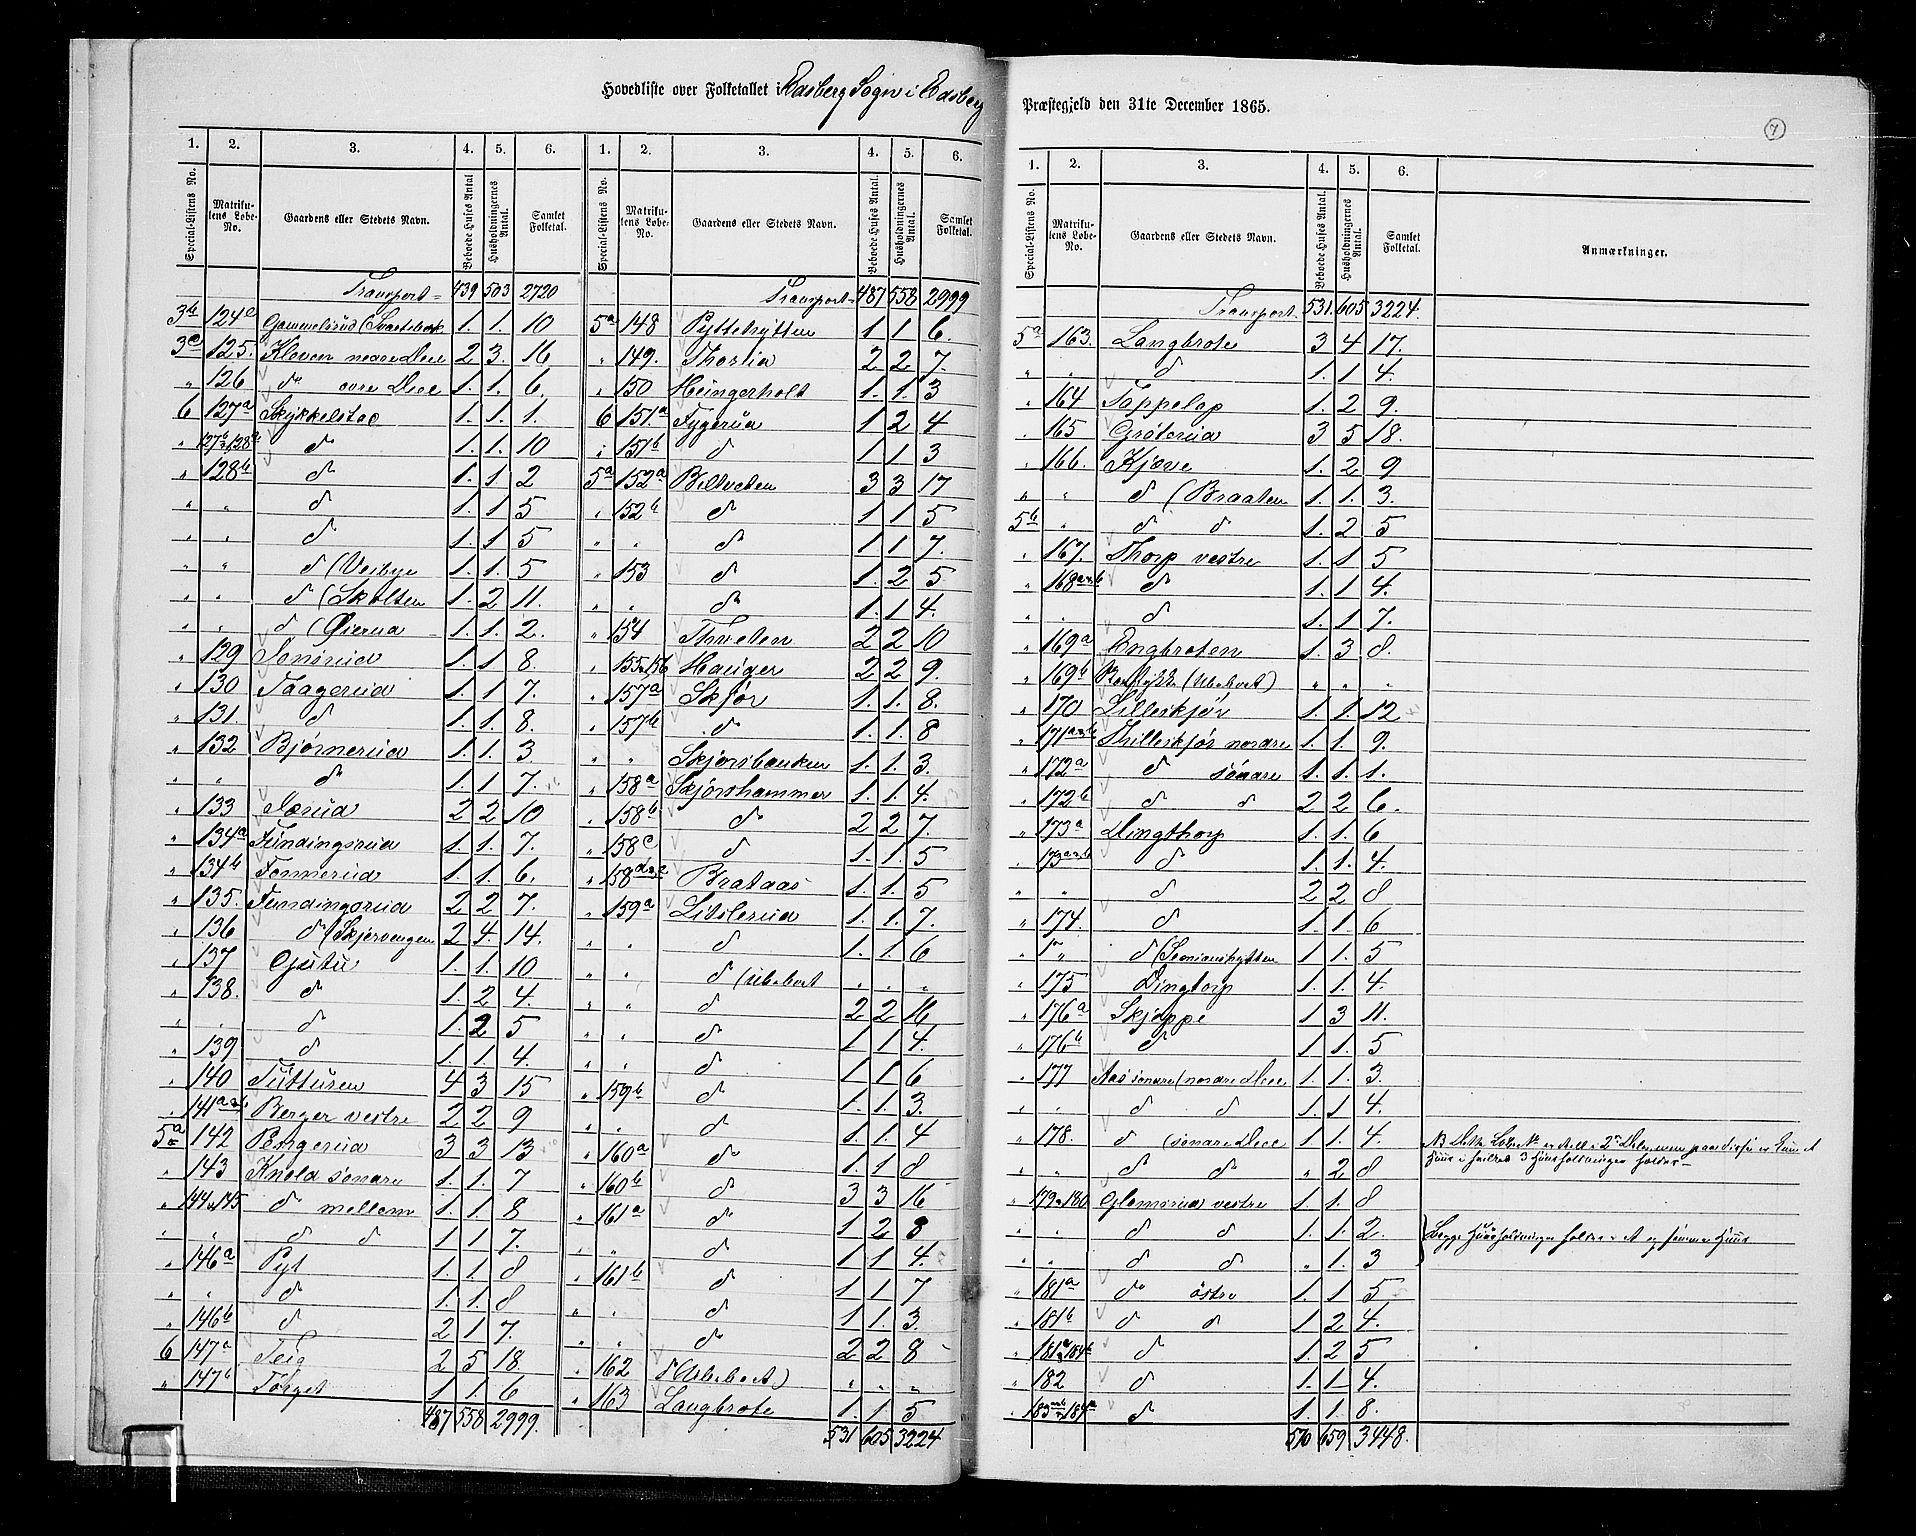 Hovedliste over Folketallet i Edsberg Sogn i Edsberg Præstegjeld den 31te December 1865.
7
1. 2. 3. 4. 5. 6. 1. 2. 3. 4. 5. 6.
Special-Listens No. Matrikulens Løbe-No. Gaardens eller Stedets Navn. Beboede Huses Antal Husholdningernes Antal. Samlet Folketal. Special-Listens No. Matrikulens Løbe-No. Gaardens eller Stedets Navn. Beboede Huses Antal. Husholdningernes Antal. Samlet Folketal.
Transport 439 503 2720
3b 124c Gammelsrud (Svartebæk 1. 1. 10
3c 125. Kloven nedre Deel 2 3. 16
" 126 do øvre Deel 1. 1. 6.
6 127a Skykkelstad 1. 1. 1.
" 127b, 128a do 1. 1. 10
" 128b do 1. 1 2
" " do 1. 1 5
" " do 1. 1 5
" " do (Vesbye 1. 1. 5
" " do (Skolten 1. 2 11.
" " do (Øierud 1. 1. 2.
" 129 Tonsrud 1. 1 8.
" 130 Taagerud 1. 1 7.
" 131. do 1. 1. 8.
" 132 Bjørnerud 1. 1. 3
" " do 1. 1 7.
" 133 2 2 10
" 134a Fundingsrud 1. 1. 7.
" 134b Tonnerud 1. 1 6.
" 135. Fundingsrud 2 2 7.
" 136 do (Skjervengen 2 4. 14.
" 137 Gutu 1. 1. 10
" 138. do 1. 2 4.
" " do 1. 2 5
" 139 do 1 1 4.
" 140 Tutturen 4 3 15
" 141a Berger vestre 2 2 9
5a 142 Pengerud 3 3 13
" 143 Knola søndre 1. 1. 7
" 144, 145 do mellem 1. 1. 8
" " do do 1 1 7.
" 146a Pyt 1. 1. 8
" " do 1. 1. 8
" 146b do 2 1 7.
6 147a Teig 2 5 18.
" 147b Torget 1 1 6
487 558 2999.
Transport 487 558 2999
5a 148 Pyttehytten 1 1 6.
" 149. Thorlia 2 2 7.
" 150 Heingerholt 1. 1. 3
6 151a Tygerud 1 2 4
" 151b do 1 1 3
5a 152a Biltvedten 3 3 17
" 152b do 1 1 5
" " do 1 1 7.
" 153 do 1. 2 5
" " do 1. 1 4.
" 154 Thveten 2 2 10
" 155, 156 Hauger 2 2 9.
" 157a Skjør 1. 1. 8.
" 157b do 1. 1. 8
" " Skjørsbakken 1. 1. 3.
" 158a Skjørshammer 1. 1. 4.
" 158b do 2 2 7.
" 158c do 1. 1. 5
" 158d Brataas 1. 1. 5
" 159a Litslerud 1. 1. 7.
" " do 1. 1. 6
" " do (Ubeboet " " "
" " do 2 2 16
" " do 1 1 4.
" " do 1 1 6
" 159b do 1. 1. 3.
" " do 1. 1. 4
" 160a do 1. 1 8
" 160b do 3 3 16
" 161a do 1 2 8
" " do 1 1 4.
" 161b do 1 1 7
" " do 1 1. 3.
" " do 2 2 8
" 162 do (Ubeboet) " " "
" 163 Langbrote 1. 1. 5
531 605 3224
1. 2. 3. 4. 5. 6.
Special-Listens No. Matrikulens Løbe-No. Gaardens eller Stedets Navn. Beboede Huses Antal. Husholdningernes Antal. Samlet Folketal. Anmærkninger.
Transport. 531. 605 3224.
5a 163. Langbrote 3 4 17.
" " do 1. 1 4.
" 164 Tappelap 1. 2 9.
" 165 Grøterud 3 5 18.
" 166. Kjøve 1. 2 9
" " do (Braaten 1. 1. 3.
5b " do do 1. 2 5
" 167. Thorp vestre 1. 1 5
" 168a do 1. 1 4.
" " do 1. 1 7.
" 169a Engbroten 1. 3 8.
" 169b (Ubeboet) " " "
" 170 Lilleskjør 1. 1. 12
" 171a nordre 1. 1. 9.
" 172a do søndre 1. 1. 1.
" 172b do do 2 2 6.
" 173a Dingthorp 1. 1. 6
" 173 do 1. 1. 4.
" " do 2 2 8
" 174. do 1. 1 6
" " do 1. 1. 5
" 175 Dingtorp 1. 1 4.
" 176a Skjøppe 1 3 11.
" 176b do 1 1. 5
" 177 Aas søndre (nordre Deel 1. 1. 3.
" " do do 1. 1 4.
" 178. do (søndre Deel 1. 1. 4.
" " do do " 2 8
" 179, 180 Glomsrud vestre 1. 1. 8
" " do do 1. 1. 2.
" " do do " 1. 3
" 181a do østre 1. 1 5
" 181b do do 1. 2 4.
" 181, 184b do 1. 2 5
" 182 do 1. 1 4.
" 183, 184a do 1. 1. 8.
570 659 3448.
NB Dette Løbe No er delt i 2de Dele, men paa disse er kun et
Huus i hvilket 3 Huusholdninger holdes
Begge Huusholdninger holdes i et og samme Huus